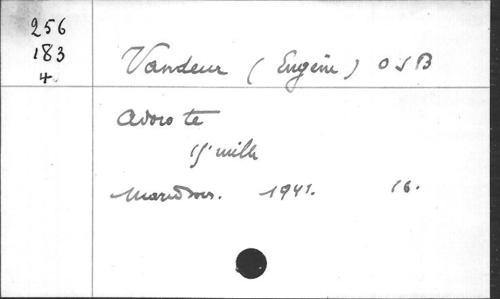 256
183
4
Vandeur (Eugène) OSB
Adoro te
15e mille
Maredsous. 1941. 16.